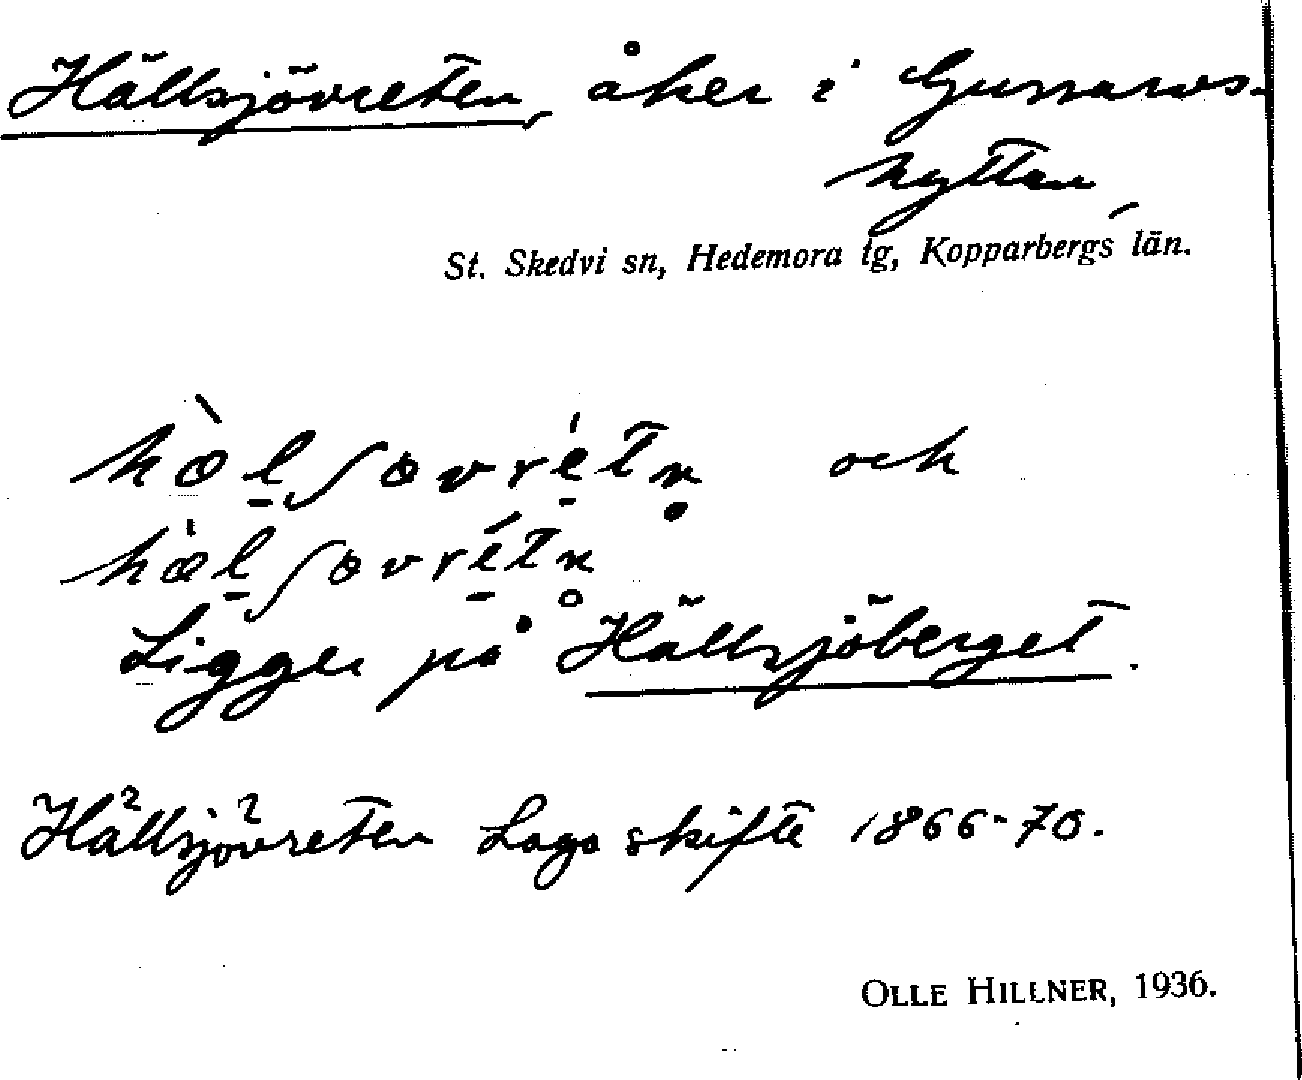 Hällsjövreten, åker i Gussarvs-
hyttan,
St. Skedvi sn, Hedemora tg, Kopparbergs län.
hæ̀l̠ʃovré̠tn̥ och
hæ̀l̠ʃovré̠tn̥
Ligger på Hällsjöberget.
Hällsjövreten Laga skifte 1866-70.
OLLE HILLNER, 1936.